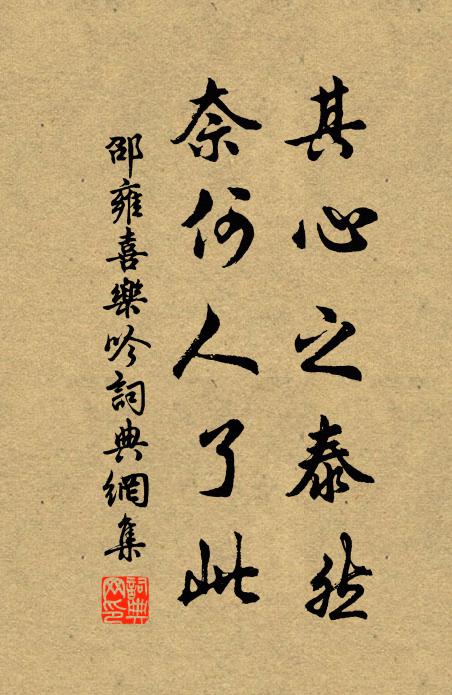 其心之泰然
奈何人了此
邵雍喜樂吟詞典網集
詞典網印